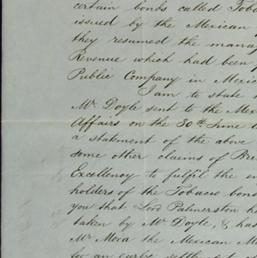 certain bonds called Tob
issued by the Mexican
they resumed the mana
Revenue which had been
Public Company in Mexic
I am to state
Mr. Doyle sent to the Mex
Affairs on the 30th June
a statement of the above
some other claims of Br
Excellency to fulfil the en
holders of the Tobacco bond
you that Lord Palmerston h
taken by Mr. Doyle, & has
Mr. Mora the Mexican M
for an early settlement of